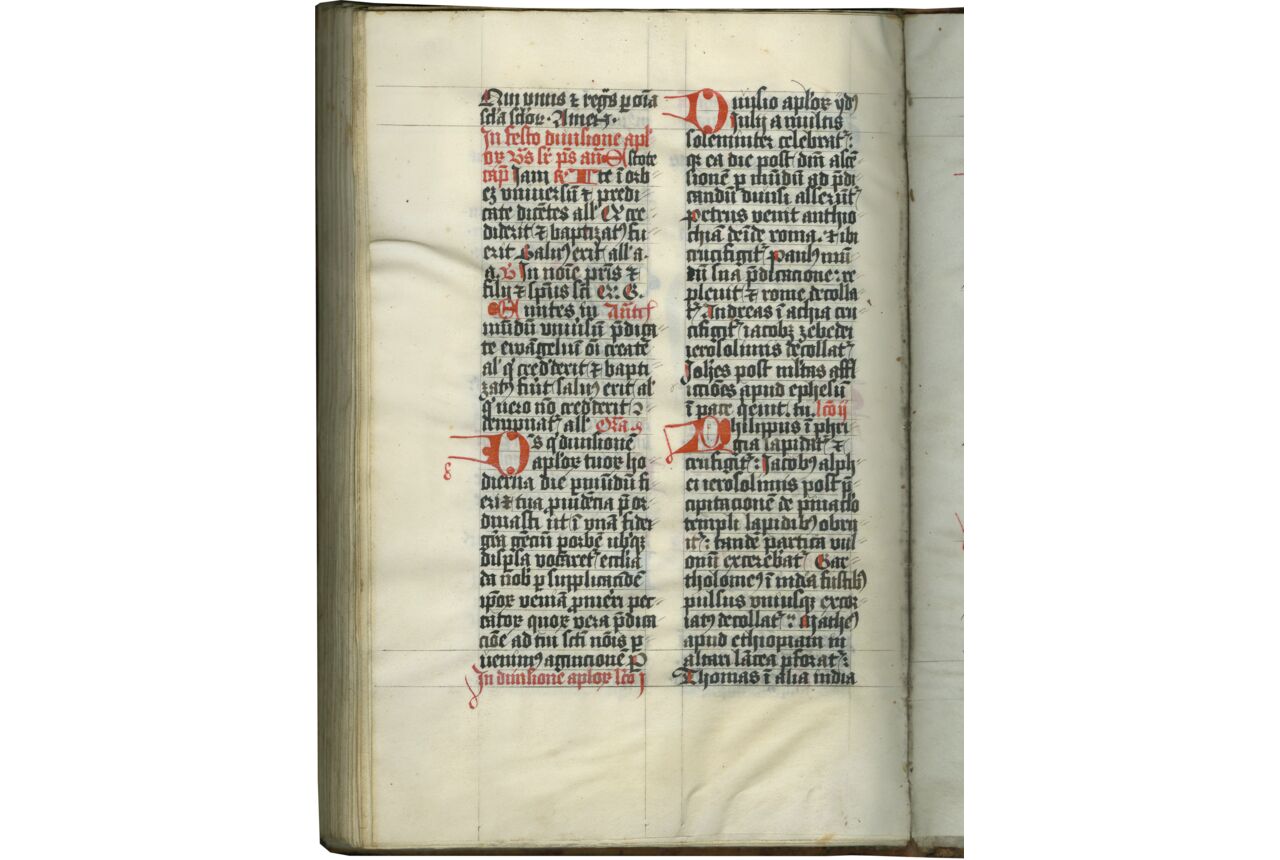 Qui viuis ⁊ regn̄s ꝑ oīa
scl̄a sclor̄. Amen.
In festo diuisione apl'
or̄ v̄s sr̄ ps̄ an̄ Estote
cap̄ Iam R̄ Ite ī orb
eȝ vniuersū ⁊ predi
cate dicētes all' Q' cre
diderit ⁊ baptizat⁹ fu
erit Salu⁹ erit all'a.
a. v̄ In noīe pr̄is ⁊
filij ⁊ sp̄us scī Q'. G.
Euntes in
mūdū vniu'sū p̄dica
te ewāgeliū oī create
al' q' cred'derit ⁊ bapti
zat⁹ fu'it salu⁹ erit al'
q' uero nō cred'derit ꝯ
tempnat̄ all' Or̄a
D's q' diuisionē
aplor̄ tuor̄ ho
dierna die ꝑ mūdū fi
eri ⁊ tua ꝓuidēcia p̄or
dinasti ut ī vnā fidei
gr̄a gēciū ꝑ orbē ubiqȝ
disp̄sa vocaret̄ ecclīa
da nob̄ ꝑ supplicacōē
ip̄or̄ veniā ꝓmeri pec
cator̄ quor̄ vera p̄dica
ciōē ad tui scī nōis ꝑ
uenim⁹ agnicionē P
In diuisione aplor̄ lcō j
Diuisio aplor̄ yd⁹
Iulij a multis
solemniter celebrat̄:
qr̄ ea die post dm̄ ascē
sionē ꝑ mūdū ad p̄di
candū diuisi asserūt̄
Petrus venit anthio
chiā deīde roma. ⁊ ibi
crucifigit̄ Paul⁹ mū
dū sua p̄dicacione: re
pleuit ⁊ rome decolla
t̄ Andreas ī achia cru
cifigit̄ iacob⁹ zebedei
ierosolimis decollat̄
Joh̄es post m̄ltas affl
ictiōes apud ephesū
ī pace q'euit. tu. lcō ij
Philippus ī phri
gia lapidat̄ ⁊
crucifigit̄: Jacob⁹ alph
ei ierosolimis post p̄
cipitacionē de pīnaclo
templi lapidib⁹ obru
it̄: tandē partica
excerebat̄ Bar
tholome⁹ ī india fustib⁹
pulsus viuusqȝ excor
iat⁹ decollat̄: Mathe⁹
apud ethiopiam in
altari lācea ꝑforat̄:
Thomas ī alia india